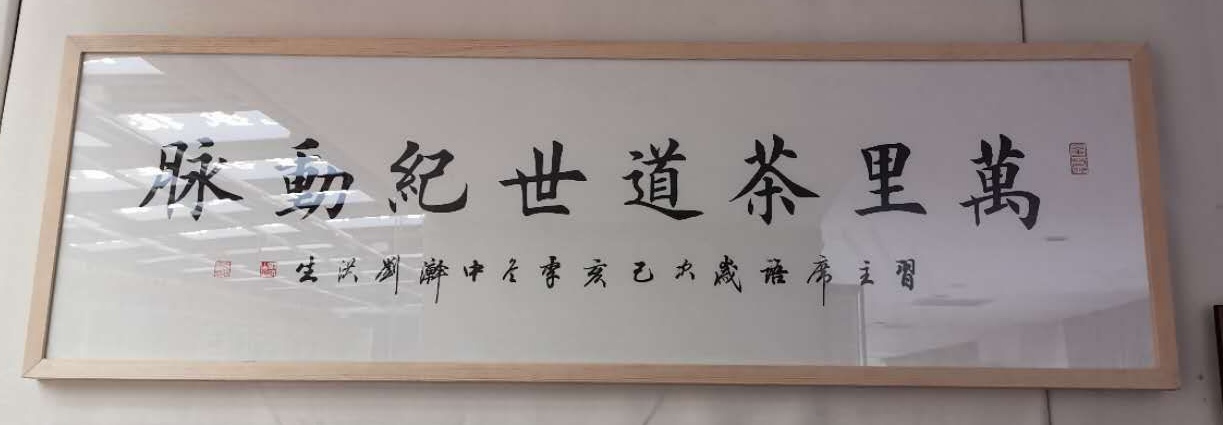 萬里茶道世紀動脉
習主席語歲次己亥季冬中澣劉洪生